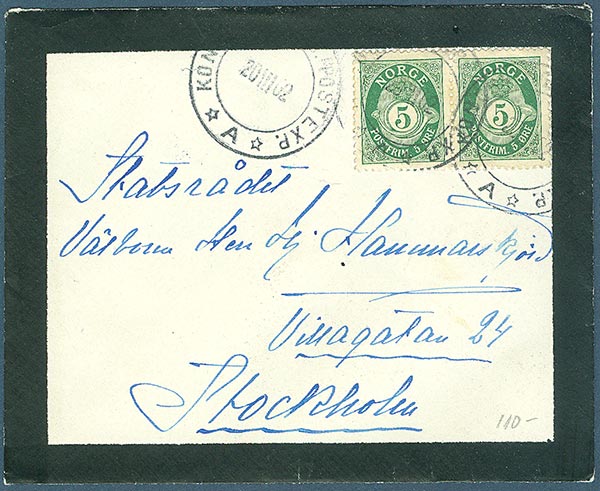 KON
POSTEXP.
A
20 III 02
NORGE
5
POSTFRIM. 5 ØRE
NORGE
5
POSTFRIM. 5 ØRE
EXP.
A
P.
Statsrådet
Välborne Herr Hj Hammarskjöld
Villagatan 24
Stockholm
110-